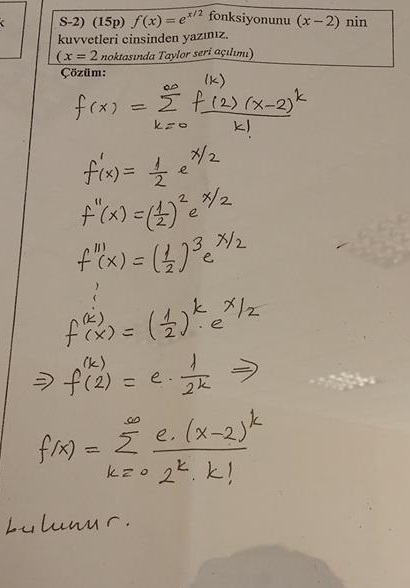 k
S-2) (15p) f(x) = e^{x/2} fonksiyonunu (x − 2) nin
kuvvetleri cinsinden yazınız.
(x = 2 noktasında Taylor seri açılımı)
Çözüm:
f(x) = \sum_{k=0}^{\infty} \frac{f^{(k)}(2) (x-2)^k}{k!}
f'(x) = \frac{1}{2} e^{x/2}
f''(x) = (\frac{1}{2})^2 e^{x/2}
f'''(x) = (\frac{1}{2})^3 e^{x/2}
⋮
f^{(k)}(x) = (\frac{1}{2})^k . e^{x/2}
⇒ f^{(k)}(2) = e . \frac{1}{2^k} ⇒
f(x) = \sum_{k=0}^{\infty} \frac{e . (x-2)^k}{2^k . k!}
bulunur.